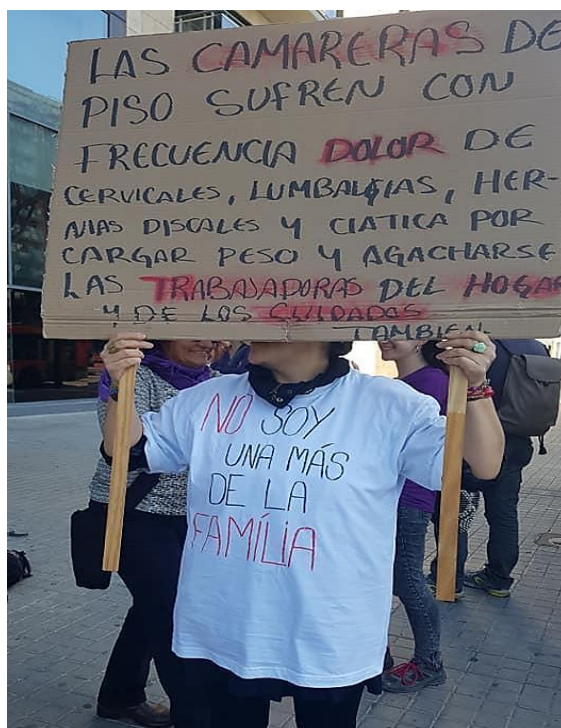 LAS CAMARERAS DE
PISO SUFREN CON
FRECUENCIA DOLOR DE
CERVICALES, LUMBALGIAS, HER-
NIAS DISCALES Y CIATICA POR
CARGAR PESO Y AGACHARSE
LAS TRABAJADORAS DEL HOGAR
Y DE LOS CUIDADOS
TAMBIEN
NO SOY
UNA MÁS
DE LA
FAMÍLIA